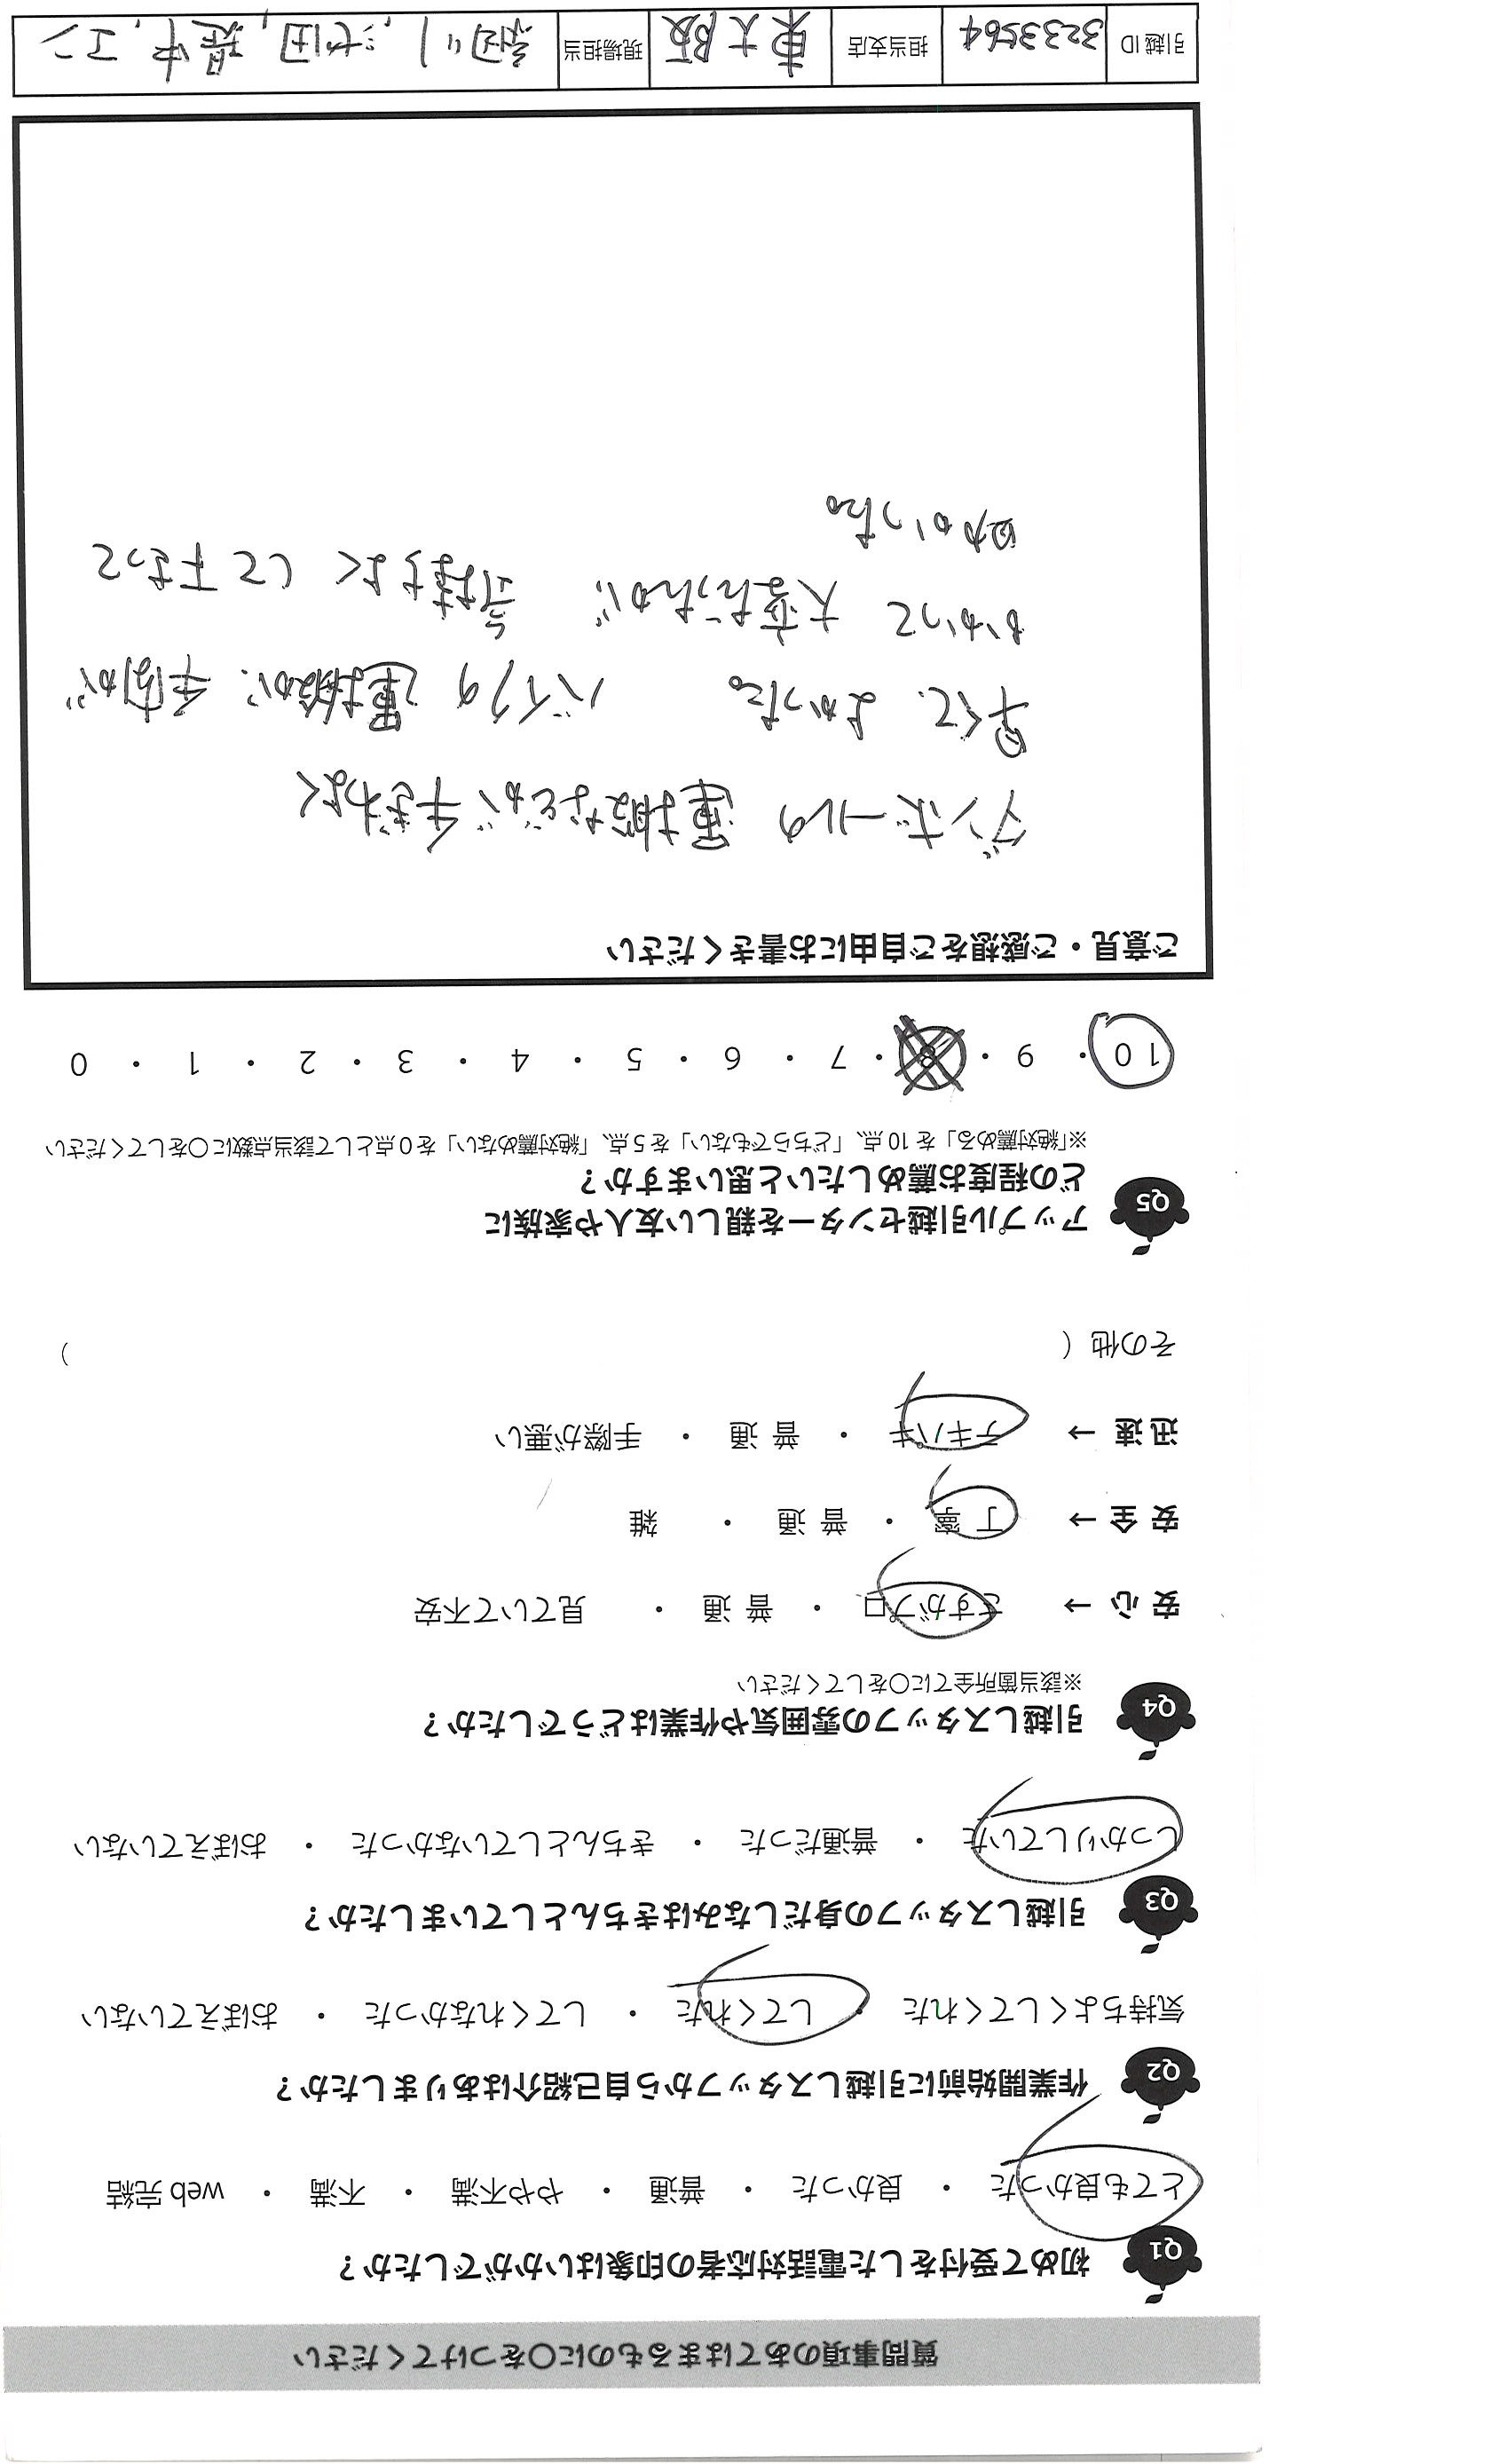 質問事項のあてはまるものに〇をつけてください
Q1 初めて受付をした電話対応者の印象はいかがでしたか？
とても良かった ・ 良かった ・ 普通 ・ やや不満 ・ 不満 ・ web完結
Q2 作業開始前に引越しスタッフから自己紹介はありましたか？
気持ちよくしてくれた ・ してくれた ・ してくれなかった ・ おぼえていない
Q3 引越しスタッフの身だしなみはきちんとしていましたか？
しっかりしていた ・ 普通だった ・ きちんとしていなかった ・ おぼえていない
Q4 引越しスタッフの雰囲気や作業はどうでしたか？
※該当箇所全てに〇をしてください
安心 → さすがプロ ・ 普通 ・ 見ていて不安
安全 → 丁寧 ・ 普通 ・ 雑
迅速 → テキパキ ・ 普通 ・ 手際が悪い
その他（ ）
Q5 アップル引越センターを親しい友人や家族に
どの程度お薦めしたいと思いますか？
※「絶対薦める」を10点、「どちらでもない」を5点、「絶対薦めない」を0点として該当点数に〇をしてください
10 ・ 9 ・ 8 ・ 7 ・ 6 ・ 5 ・ 4 ・ 3 ・ 2 ・ 1 ・ 0
ご意見・ご感想をご自由にお書きください
ダンボールの 運搬などが 手ぎわよく
早くて、よかった。 バイクの 運搬が、手間が
かかって 大変だったが、 気持ちよく して下さって
良かった。
引越ID 3233564 担当支店 東大阪 現場担当 池田, エン